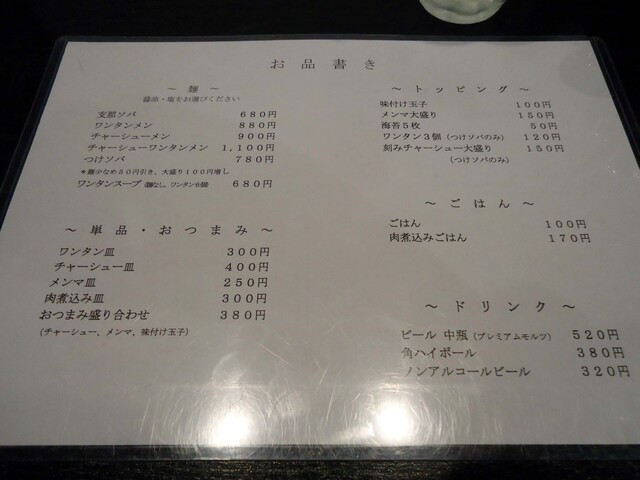 お品書き
～ 麺 ～
醤油・塩をお選びください
支那ソバ 680円
ワンタンメン 880円
チャーシューメン 900円
チャーシューワンタンメン 1,100円
つけソバ 780円
*麺少なめ50円引き、大盛り100円増し
ワンタンスープ (麺なし、ワンタン6個) 680円
～ 単品・おつまみ ～
ワンタン皿 300円
チャーシュー皿 400円
メンマ皿 250円
肉煮込み皿 300円
おつまみ盛り合わせ 380円
(チャーシュー、メンマ、味付け玉子)
～ トッピング ～
味付け玉子 100円
メンマ大盛り 150円
海苔5枚 50円
ワンタン3個 (つけソバのみ) 120円
刻みチャーシュー大盛り 150円
(つけソバのみ)
～ ごはん ～
ごはん 100円
肉煮込みごはん 170円
～ ドリンク ～
ビール 中瓶 (プレミアムモルツ) 520円
角ハイボール 380円
ノンアルコールビール 320円